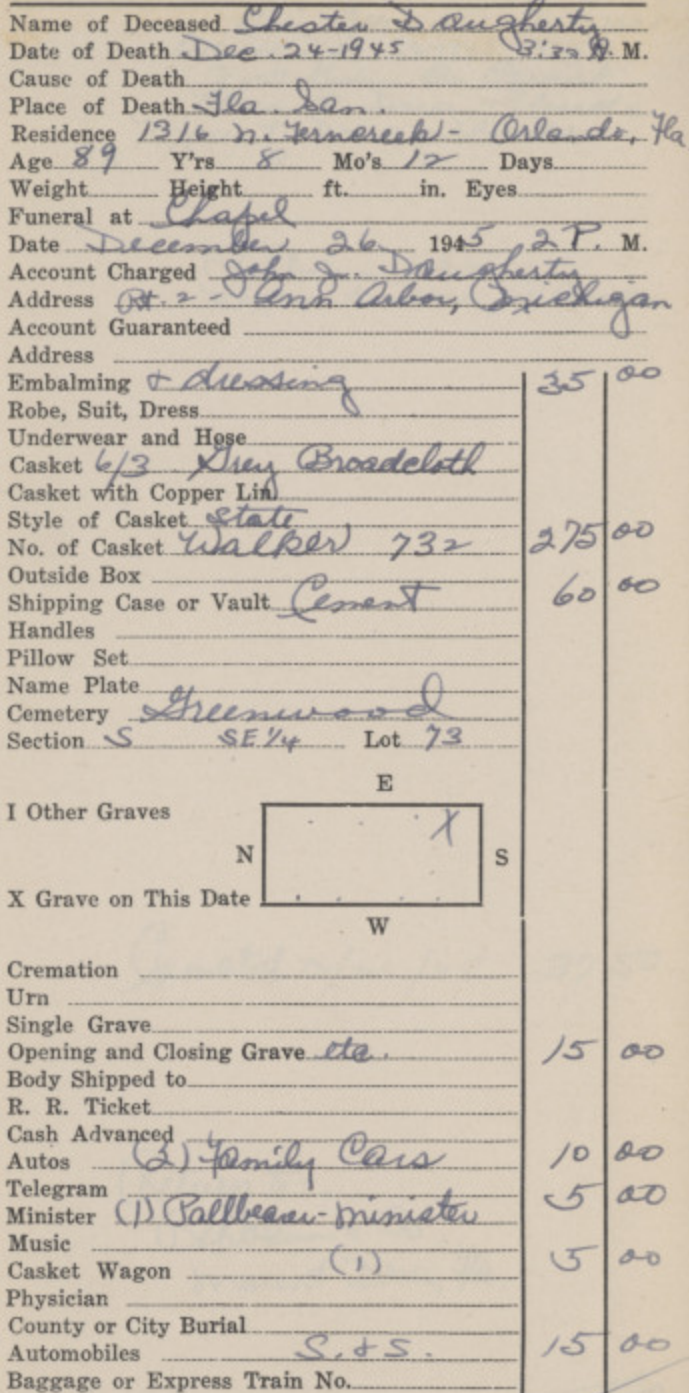 Name of Deceased Chester Daugherty
Date of Death Dec. 24-1945 3:30 A. M.
Cause of Death
Place of Death Fla. San.
Residence 1316 N. Ferncreek - Orlando, Fla
Age 89 Y'rs 8 Mo's 12 Days
Weight Height ft. in. Eyes
Funeral at Chapel
Date December 26 1945 2 P. M.
Account Charged John J. Daugherty
Address Rt. 2 - Ann Arbor, Michigan
Account Guaranteed
Address
Embalming & dressing 35 00
Robe, Suit, Dress
Underwear and Hose
Casket 6/3 Grey Broadcloth
Casket with Copper Lin
Style of Casket State
No. of Casket Walker 732 275 00
Outside Box
Shipping Case or Vault Cement 60 00
Handles
Pillow Set
Name Plate
Cemetery Greenwood
Section S SE 1/4 Lot 73
E
I Other Graves X
N S
X Grave on This Date
W
Cremation
Urn
Single Grave
Opening and Closing Grave etc. 15 00
Body Shipped to
R. R. Ticket
Cash Advanced
Autos (2) Family Cars 10 00
Telegram
Minister (1) Pallbearer-minister 5 00
Music
Casket Wagon (1) 5 00
Physician
County or City Burial
Automobiles S. & S. 15 00
Baggage or Express Train No.